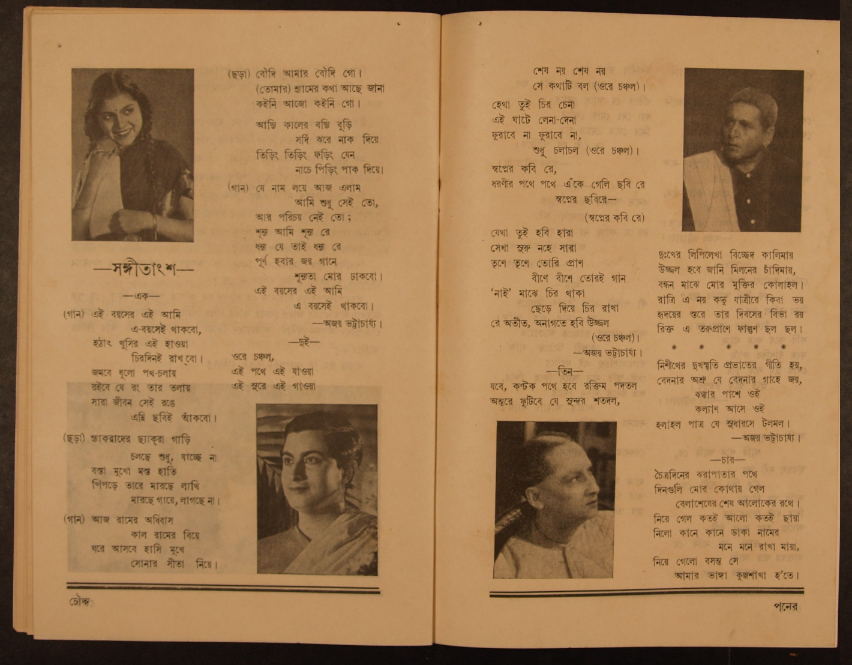 —সঙ্গীতাংশ—
—এক—
(গান) এই বয়সের এই আমি
এ-বয়সেই থাকবো,
হঠাৎ খুসির এই হাওয়া
চিরদিনই রাখবো।
জমবে ধূলো পথ-চলায়
রইবে যে রং তার তলায়
সারা জীবন সেই রঙে
এম্নি ছবিই আঁকবো।
(ছড়া) স্যাকরাদের ছ্যাক্‌রা গাড়ি
চলছে শুধু, যাচ্ছে না
বস্তা মুখো মস্ত হাতি
পিঁপড়ে তারে মারছে লাথি
মারছে গায়ে, লাগছে না।
(গান) আজ রামের অধিবাস
কাল রামের বিয়ে
ঘরে আসবে হাসি মুখে
সোনার সীতা নিয়ে।
(ছড়া) বৌদি আমার বৌদি গো।
(তোমার) শ্যামের কথা আছে জানা
কইনি আজো কইনি গো।
আদ্যি কালের বদ্যি বুড়ি
সর্দি ঝরে নাক দিয়ে
তিড়িং তিড়িং ফড়িং যেন
নাচে পিড়িং পাক দিয়ে।
(গান) যে নাম লয়ে আজ এলাম
আমি শুধু সেই তো,
আর পরিচয় নেই তো ;
শূন্য আমি শূন্য রে
ধন্য যে তাই ধন্য রে
পূর্ণ হবার জয় গানে
শূন্যতা মোর ঢাকবো।
এই বয়সের এই আমি
এ বয়সেই থাকবো।
—অজয় ভট্টাচার্য্য।
—দুই—
ওরে চঞ্চল,
এই পথে এই যাওয়া
এই সুরে এই গাওয়া
চৌদ্দ
শেষ নয় শেষ নয়
সে কথাটি বল (ওরে চঞ্চল)।
হেথা তুই চির চেনা
এই ঘাটে লেনা-দেনা
ফুরাবে না ফুরাবে না,
শুধু চলাচল (ওরে চঞ্চল)।
স্বপ্নের কবি রে,
ধরণীর পথে পথে এঁকে গেলি ছবি রে
স্বপ্নের ছবিরে—
(স্বপ্নের কবি রে)
যেথা তুই হবি হারা
সেথা সুরু নহে সারা
তৃণে তৃণে তোরি প্রাণ
বীণে বীণে তোরই গান
‘নাই’ মাঝে চির থাকা
ছেড়ে দিয়ে চির রাখা
রে অতীত, অনাগতে হবি উজ্জল
(ওরে চঞ্চল)।
—অজয় ভট্টাচার্য্য।
—তিন—
যবে, কণ্টক পথে হবে রক্তিম পদতল
অন্তরে ফুটিবে যে সুন্দর শতদল,
দুঃখের লিপিলেখা বিচ্ছেদ কালিমায়
উজ্জল হবে জানি মিলনের চাঁদিমায়,
বন্ধন মাঝে মোর মুক্তির কোলাহল।
রাত্রি এ নয় কভু যাত্রীরে কিবা ভয়
হৃদয়ের স্তরে তার দিবসের বিভা রয়
রিক্ত এ তরুপ্রাণে ফাল্গুন ছল ছল।
* * * * * *
নিশীথের দুখস্মৃতি প্রভাতের গীতি হয়,
বেদনার অশ্রু যে বেদনার গাহে জয়,
ঝঞ্ঝার পাশে ওই
কল্যাণ আসে ওই
হলাহল পাত্র যে সুধারসে টলমল।
—অজয় ভট্টাচার্য্য।
—চার—
চৈত্রদিনের ঝরাপাতার পথে
দিনগুলি মোর কোথায় গেল
বেলাশেষের শেষ আলোকের রথে।
নিয়ে গেল কতই আলো কতই ছায়া
নিলো কানে কানে ডাকা নামের
মনে মনে রাখা মায়া,
নিয়ে গেলো বসন্ত সে
আমার ভাঙ্গা কুঞ্জশাখা হ’তে।
পনের